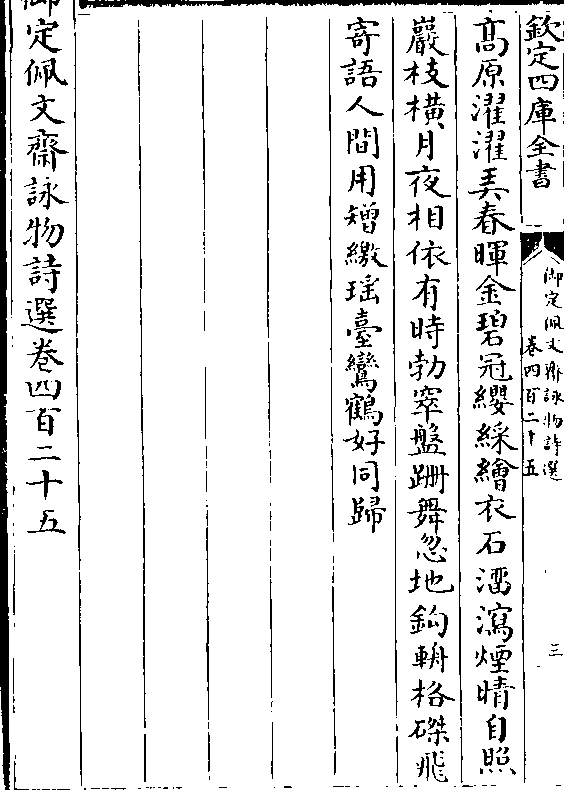 欽定四庫全書
御定佩文齋詠物詩選
卷四百二十五
三
高原濯濯弄春暉金碧冠纓綵繪衣石澑瀉煙晴自照
巖枝橫月夜相依有時勃窣盤跚舞忽地鈎輈格磔飛
寄語人間用矰繳瑶臺鸞鶴好同歸
御定佩文齋詠物詩選卷四百二十五